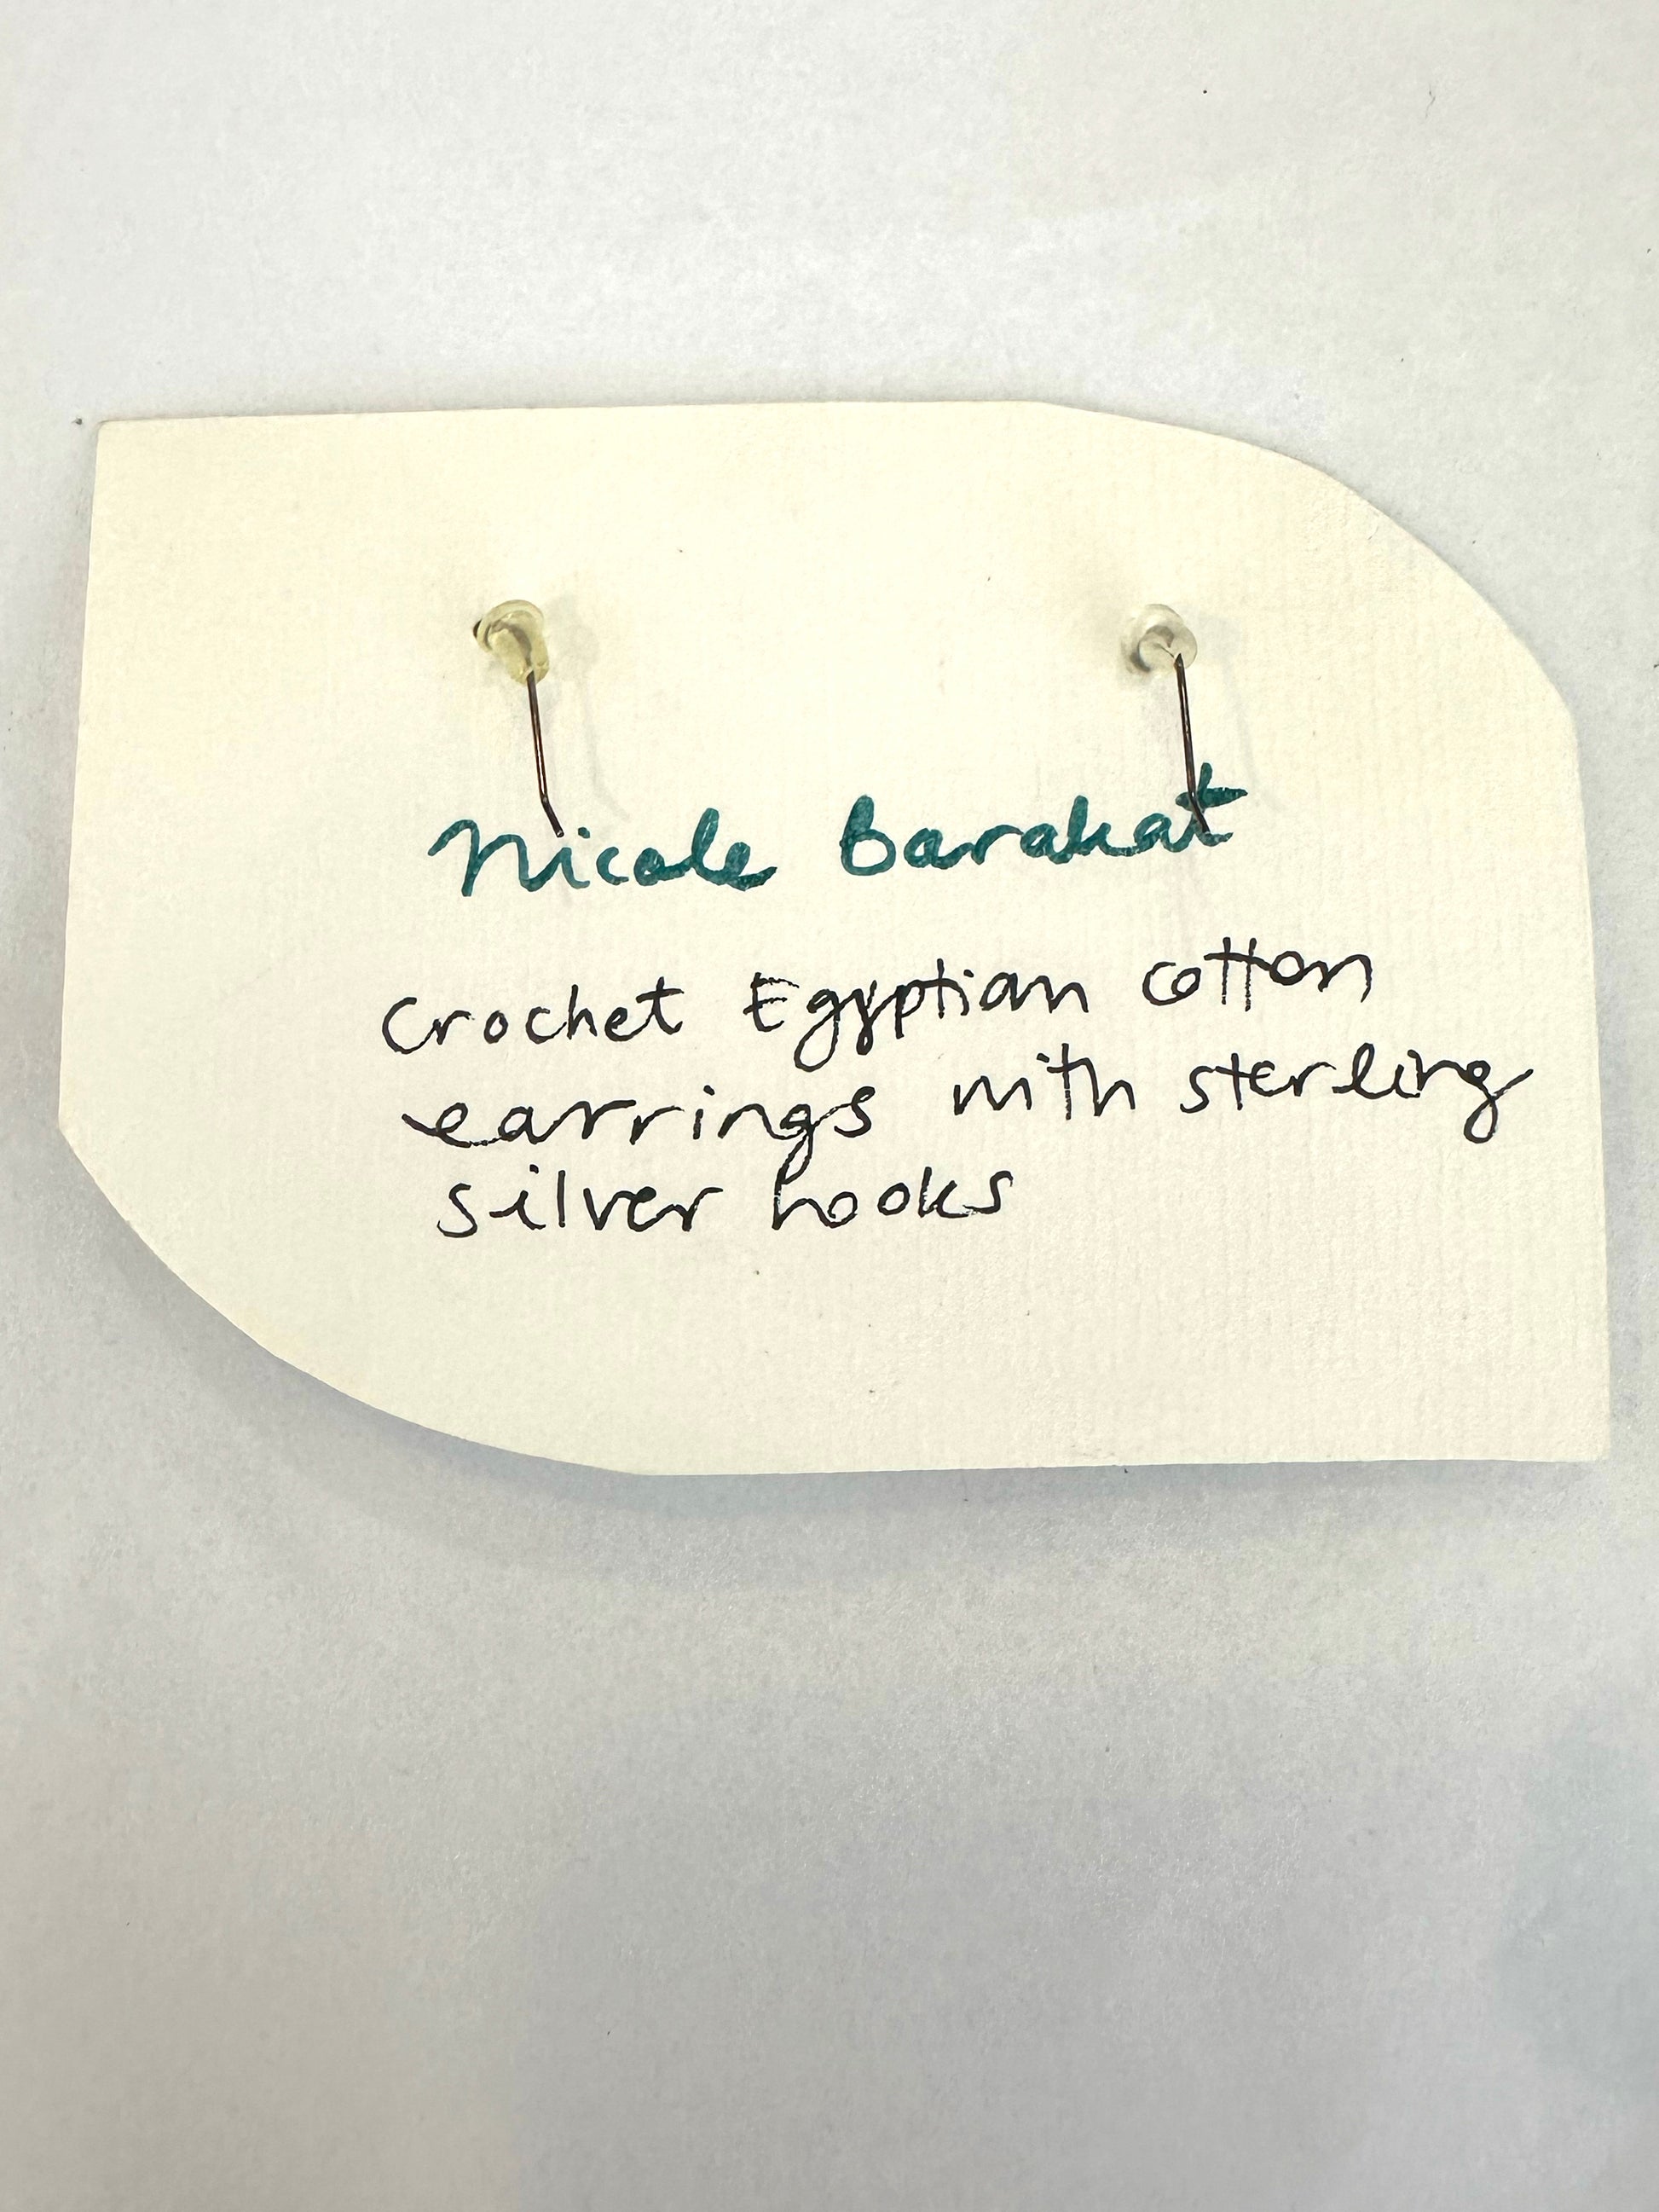 Nicole Barakat
Crochet Egyptian cotton
earrings with sterling
silver hooks